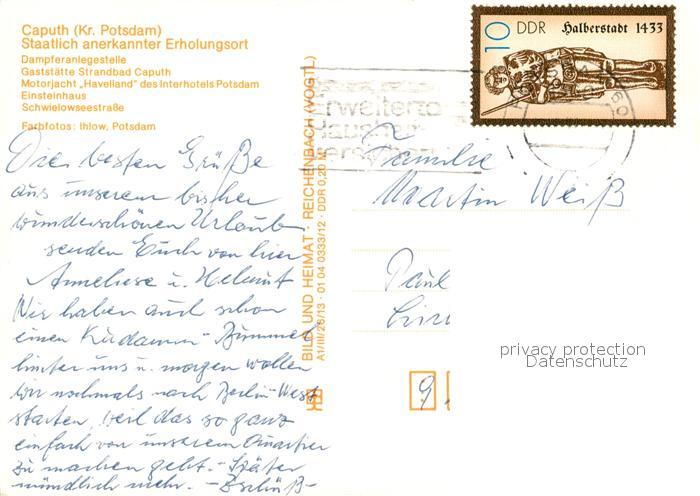 Caputh (Kr. Potsdam)
Staatlich anerkannter Erholungsort
Dampferanlegestelle
Gaststätte Strandbad Caputh
Motorjacht „Havelland" des Interhotels Potsdam
Einsteinhaus
Schwielowseestraße
Farbfotos: Ihlow, Potsdam
Die besten Grüße
aus unserem bisher
wunderschönen Urlaub
senden Euch von hier
Anneliese u. Helmut
Wir haben auch schon
einen Kudamm-Bummel
hinter uns u. morgen wollen
wir nochmals nach Berlin-West
starten, weil das so ganz
einfach von unserem Quartier
zu machen geht. - Später
mündlich mehr. - Tschüß -
BILD UND HEIMAT REICHENBACH (VOGTL)
A1/III/26/13 · 01 04 0333/12 · DDR 0,20 M
10 DDR Halberstadt 1433
Familie
Martin Weiß
Paul
9
privacy protection
Datenschutz